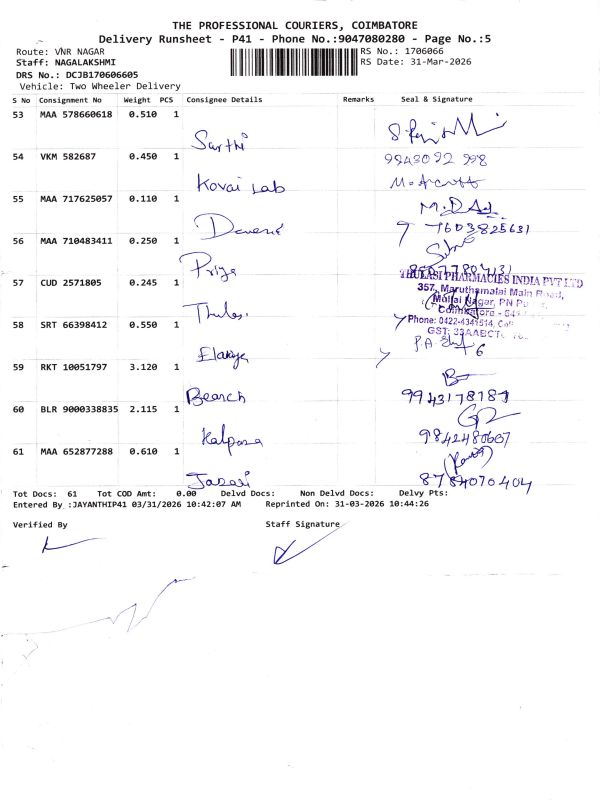 THE PROFESSIONAL COURIERS, COIMBATORE
Delivery Runsheet - P41 - Phone No.:9047080280 - Page No.:5
Route: VNR NAGAR RS No.: 1706066
Staff: NAGALAKSHMI RS Date: 31-Mar-2026
DRS No.: DCJB170606605
Vehicle: Two Wheeler Delivery
S No Consignment No Weight PCS Consignee Details Remarks Seal & Signature
53 MAA 578660618 0.510 1
Sarthi
54 VKM 582687 0.450 1
Kovai Lab
55 MAA 717625057 0.110 1
7603825631
56 MAA 710483411 0.250 1
Priya
THULASI PHARMACIES INDIA PVT LTD
57 CUD 2571805 0.245 1
357, Maruthamalai Main Road,
Mullai Nagar, PN
Coimbatore - 641
Thulasi
58 SRT 66398412 0.550 1
Phone: 0422-4341514,
GST: 33AABCT
59 RKT 10051797 3.120 1
Bearch
9943178187
60 BLR 9000338835 2.115 1
Kalpana
9842480607
61 MAA 652877288 0.610 1
8784070404
Tot Docs: 61 Tot COD Amt: 0.00 Delvd Docs: Non Delvd Docs: Delvy Pts:
Entered By :JAYANTHIP41 03/31/2026 10:42:07 AM Reprinted On: 31-03-2026 10:44:26
Verified By Staff Signature